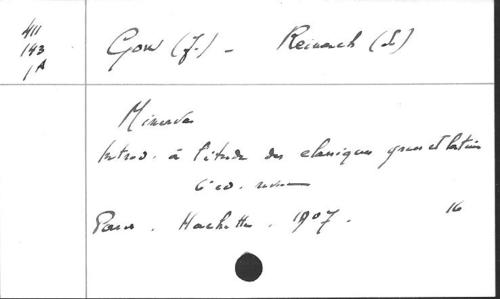 411
143
1A
Gow (J.) - Reinach (S.)
Minerva
Introd. à l'étude des classiques grecs et latins
6e ed. revue
Paris. Hachette. 1907. 16